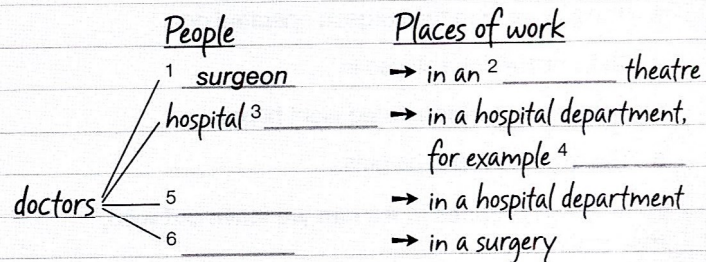 People Places of work
1 surgeon → in an 2 ________ theatre
hospital 3 ________ → in a hospital department,
for example 4 ________
doctors 5 ________ → in a hospital department
6 ________ → in a surgery